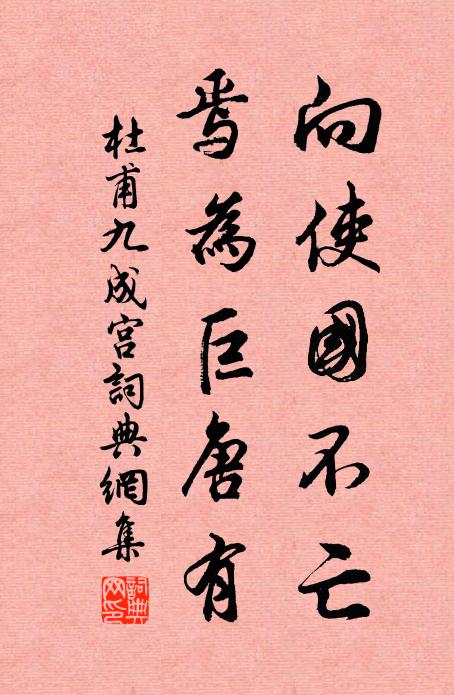 向使國不亡
焉為巨唐有
杜甫九成宮詞典網集
詞典網印